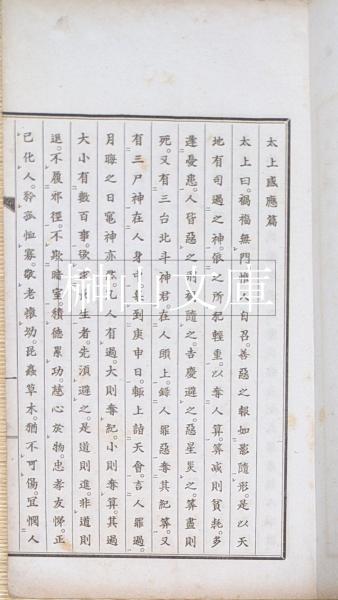 太上感應篇
太上曰。禍福無門。惟人自召。善惡之報。如影隨形。是以天
地有司過之神。依人所犯輕重。以奪人算。算減則貧耗。多
逢憂患。人皆惡之。刑禍隨之。吉慶避之。惡星災之。算盡則
死。又有三台北斗神君。在人頭上。錄人罪惡。奪其紀算。又
有三尸神。在人身中。每到庚申日。輒上詣天曹。言人罪過。
月晦之日。竈神亦然。凡人有過。大則奪紀。小則奪算。其過
大小。有數百事。欲求長生者。先須避之。是道則進。非道則
退。不履邪徑。不欺暗室。積德累功。慈心於物。忠孝友悌。正
己化人。矜孤恤寡。敬老懷幼。昆蟲草木。猶不可傷。宜憫人
榊山文庫